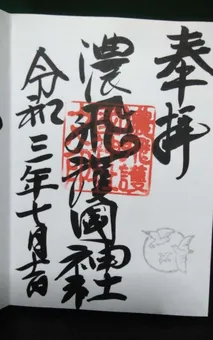 奉拝
濃飛護國神社
令和三年七月十一日